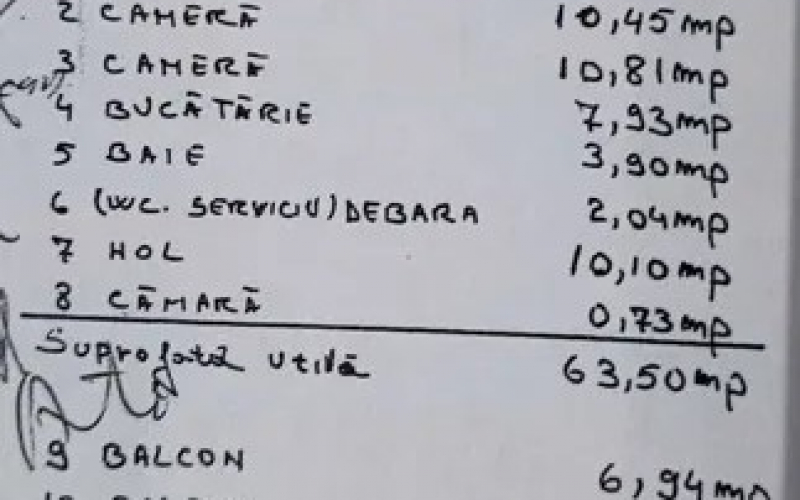 2 CAMERĂ 10,45mp
3 CAMERĂ 10,81mp
4 BUCĂTĂRIE 7,93mp
5 BAIE 3,90mp
6 (WC. SERVICIU) DEBARA 2,04mp
7 HOL 10,10mp
8 CĂMARĂ 0,73mp
Suprafată utilă 63,50mp
9 BALCON 6,94mp